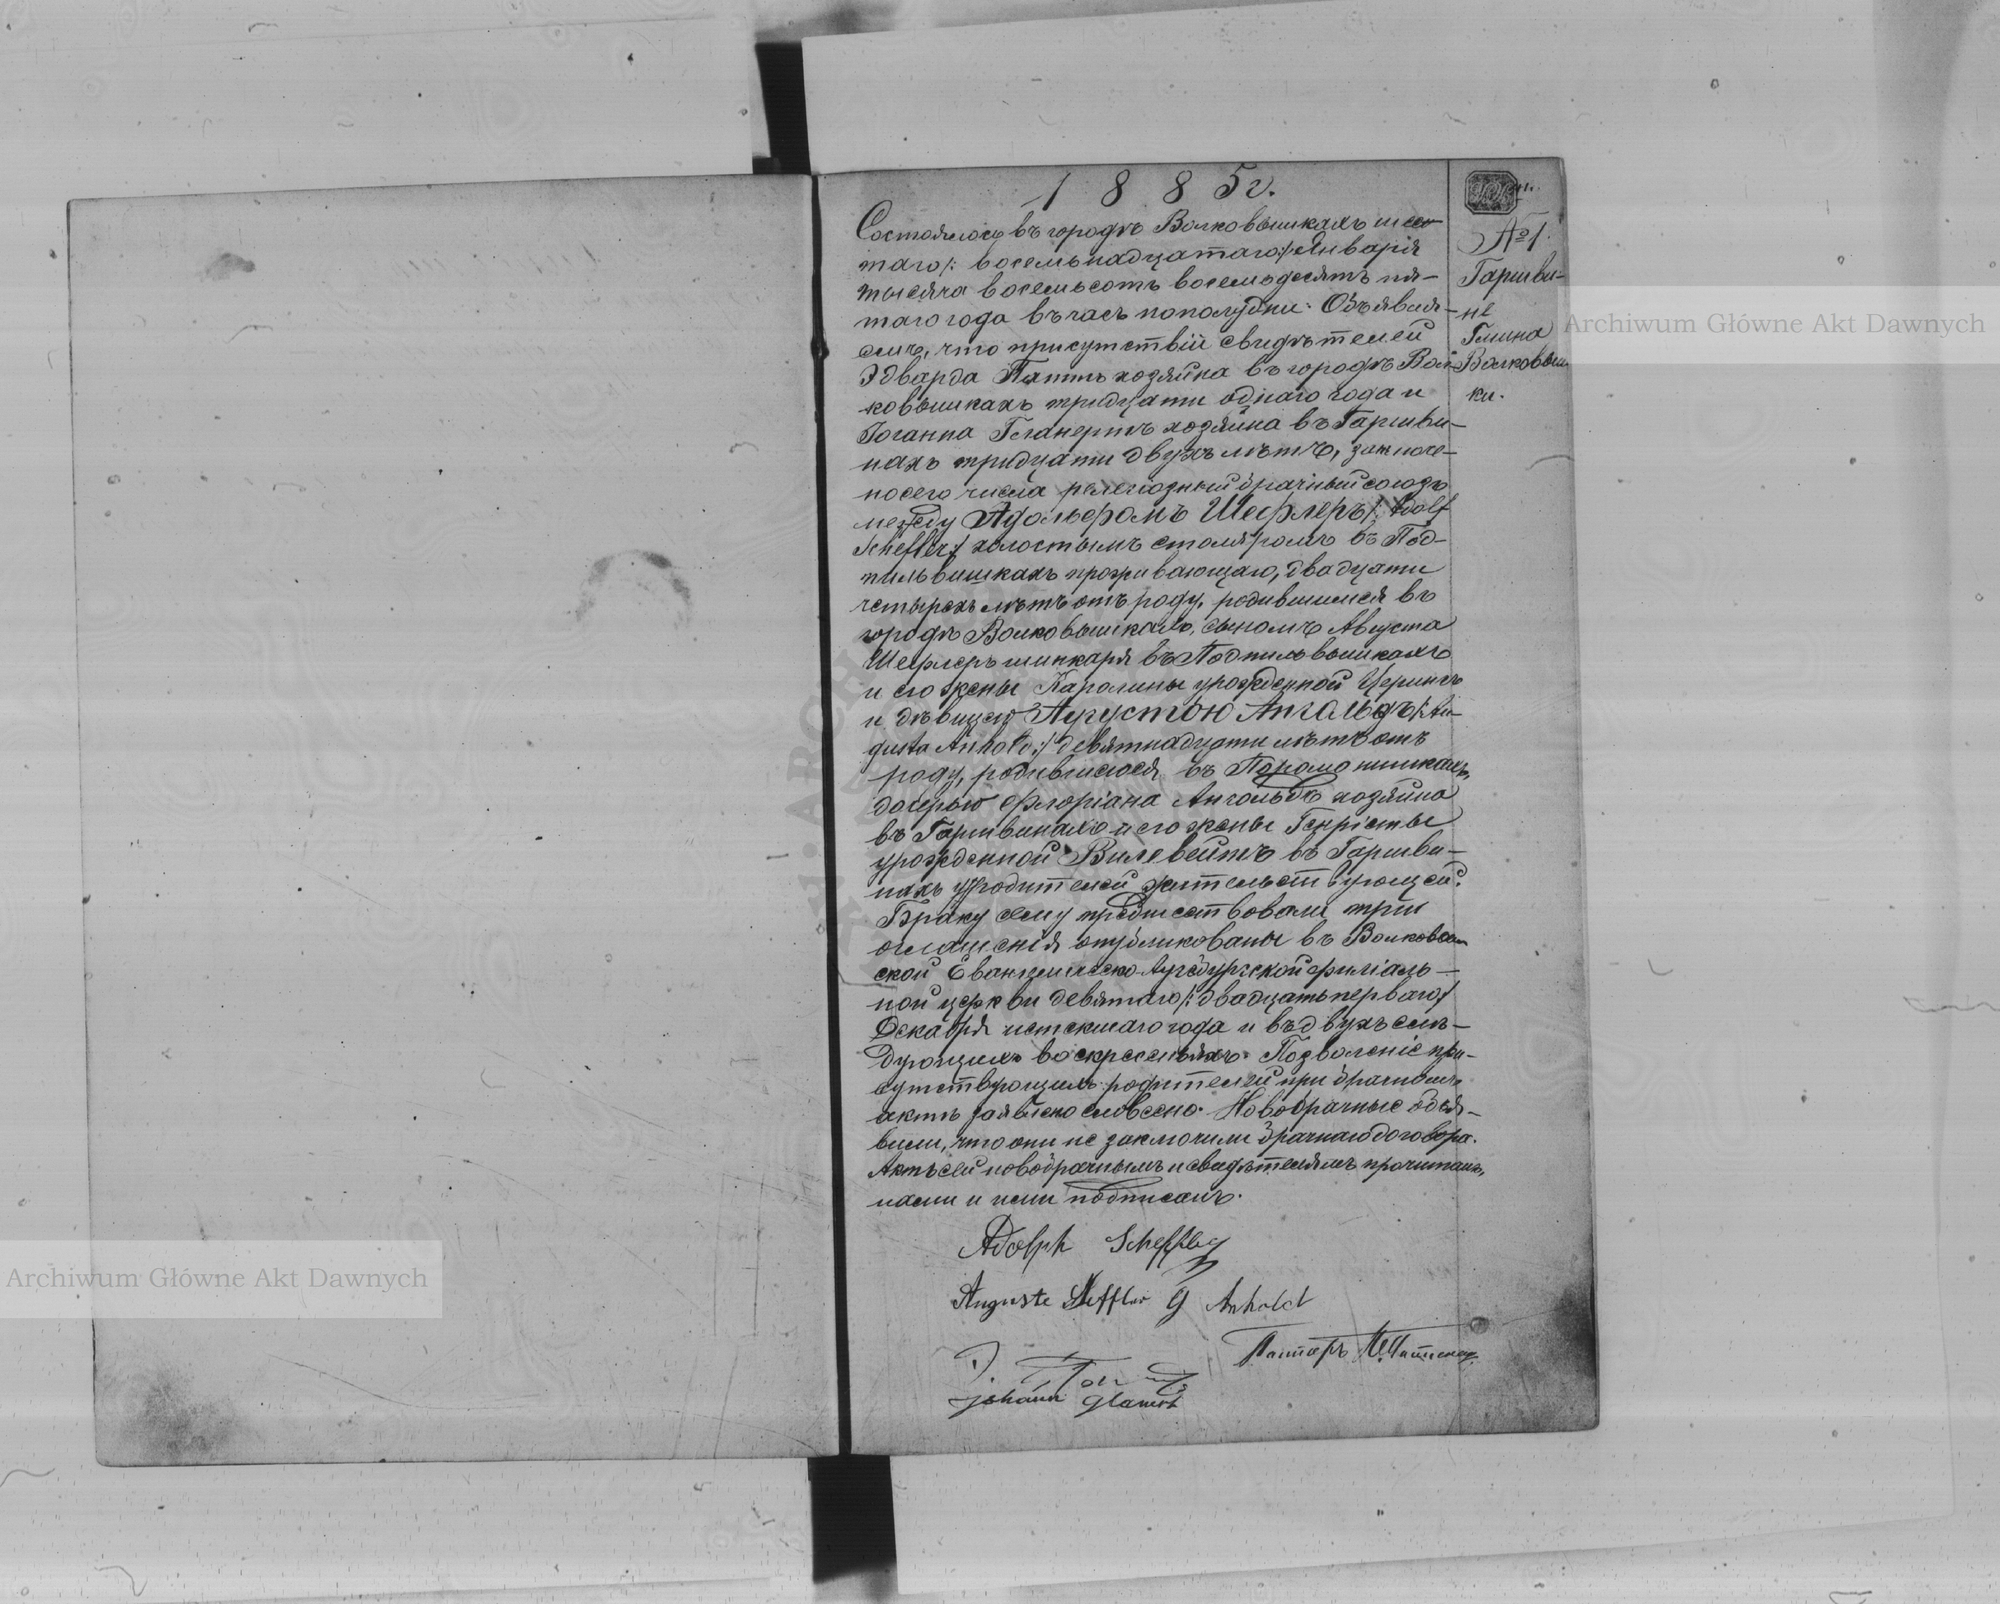 1885г.
Состоялось въ городѣ Волковышкахъ шес-
таго /: восемьнадцатаго :/ Января
тысяча восемьсотъ восемьдесятъ пя-
таго года въ часъ пополудни. Объявля-
емъ, что присутствіи свидѣтелей
Эдварда хозяйна въ городѣ Вол-
ковышкахъ тридцати одного года и
Іоганна Гланертъ хозяйна въ Гаршви-
нахъ тридцати двухъ лѣтъ, заключе-
но сего числа религіозный брачный союзъ
между Адольфомъ Шефлеръ /: Adolf
Scheffler :/ холостымъ столяромъ въ Под-
пильвишкахъ проживающаго, двадцати
четырехъ лѣтъ отъ роду, родившимся въ
городѣ Волковышкахъ, сыномъ Августа
Шефлеръ шинкаря въ Подпильвышкахъ
и его жены Каролины урожденной Церингъ
и дѣвицею Аугустою Ангольдъ /: Au-
gusta Anhold :/ девятнадцати лѣтъ отъ
роду, родившеюся въ
дочерью Флоріана Ангольдъ хозяйна
въ Гаршвинахъ и его жены Генріеты
урожденной Вилевейтъ въ Гаршви-
нахъ у родителей жительствующей.
Браку сему предшествовали три
оглашенія опубликованы въ Волковыш-
ской Евангелическо-Аугсбургской филіаль-
ной церкви девятаго /: двадцать перваго :/
Декабря истекшаго года и въ двухъ слѣ-
дующихъ воскресеньяхъ. Позволеніе при-
сутствующихъ родителей при брачномъ
актѣ заявлено словесно. Новобрачные объя-
вили, что они не заключили брачнаго договора.
Актъ сей новобрачнымъ и свидѣтелямъ прочитанъ,
нами и ими подписанъ.
Adolph Scheffler
Auguste Scheffler g Anhold
Пасторъ
Johann Glanert
№1.
Гаршви-
не
Гмина
Волковыш-
ки.
Archiwum Główne Akt Dawnych
Archiwum Główne Akt Dawnych